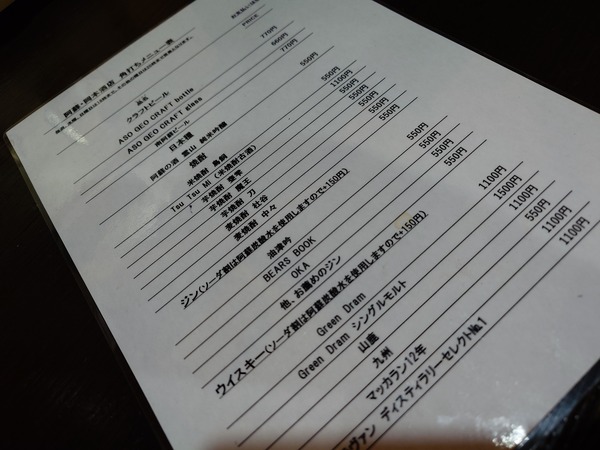 阿蘇:岡本酒店 角打ちメニュー表
品名
PRICE
クラフトビール
ASO GEO CRAFT bottle 770円
ASO GEO CRAFT glass 660円
南阿蘇ビール 770円
日本酒
阿蘇の酒 霊山 純米吟醸 550円
焼酎
米焼酎 鳥飼 550円
Tsu Tsu Mi (米焼酎古酒) 1100円
芋焼酎 亜季 550円
芋焼酎 魔王 550円
芋焼酎 刀 550円
麦焼酎 杜谷 550円
麦焼酎 中々 550円
ジン(ソーダ割は阿蘇炭酸水を使用しますので+150円)
油津吟 550円
BEARS BOOK 550円
OKA 550円
他、お薦めのジン
ウイスキー(ソーダ割は阿蘇炭酸水を使用しますので+150円)
Green Dram 1100円
Green Dram シングルモルト 1500円
山鹿 550円
九州 1100円
マッカラン12年 1100円
ヴァン ディスティラリーセレクト№1